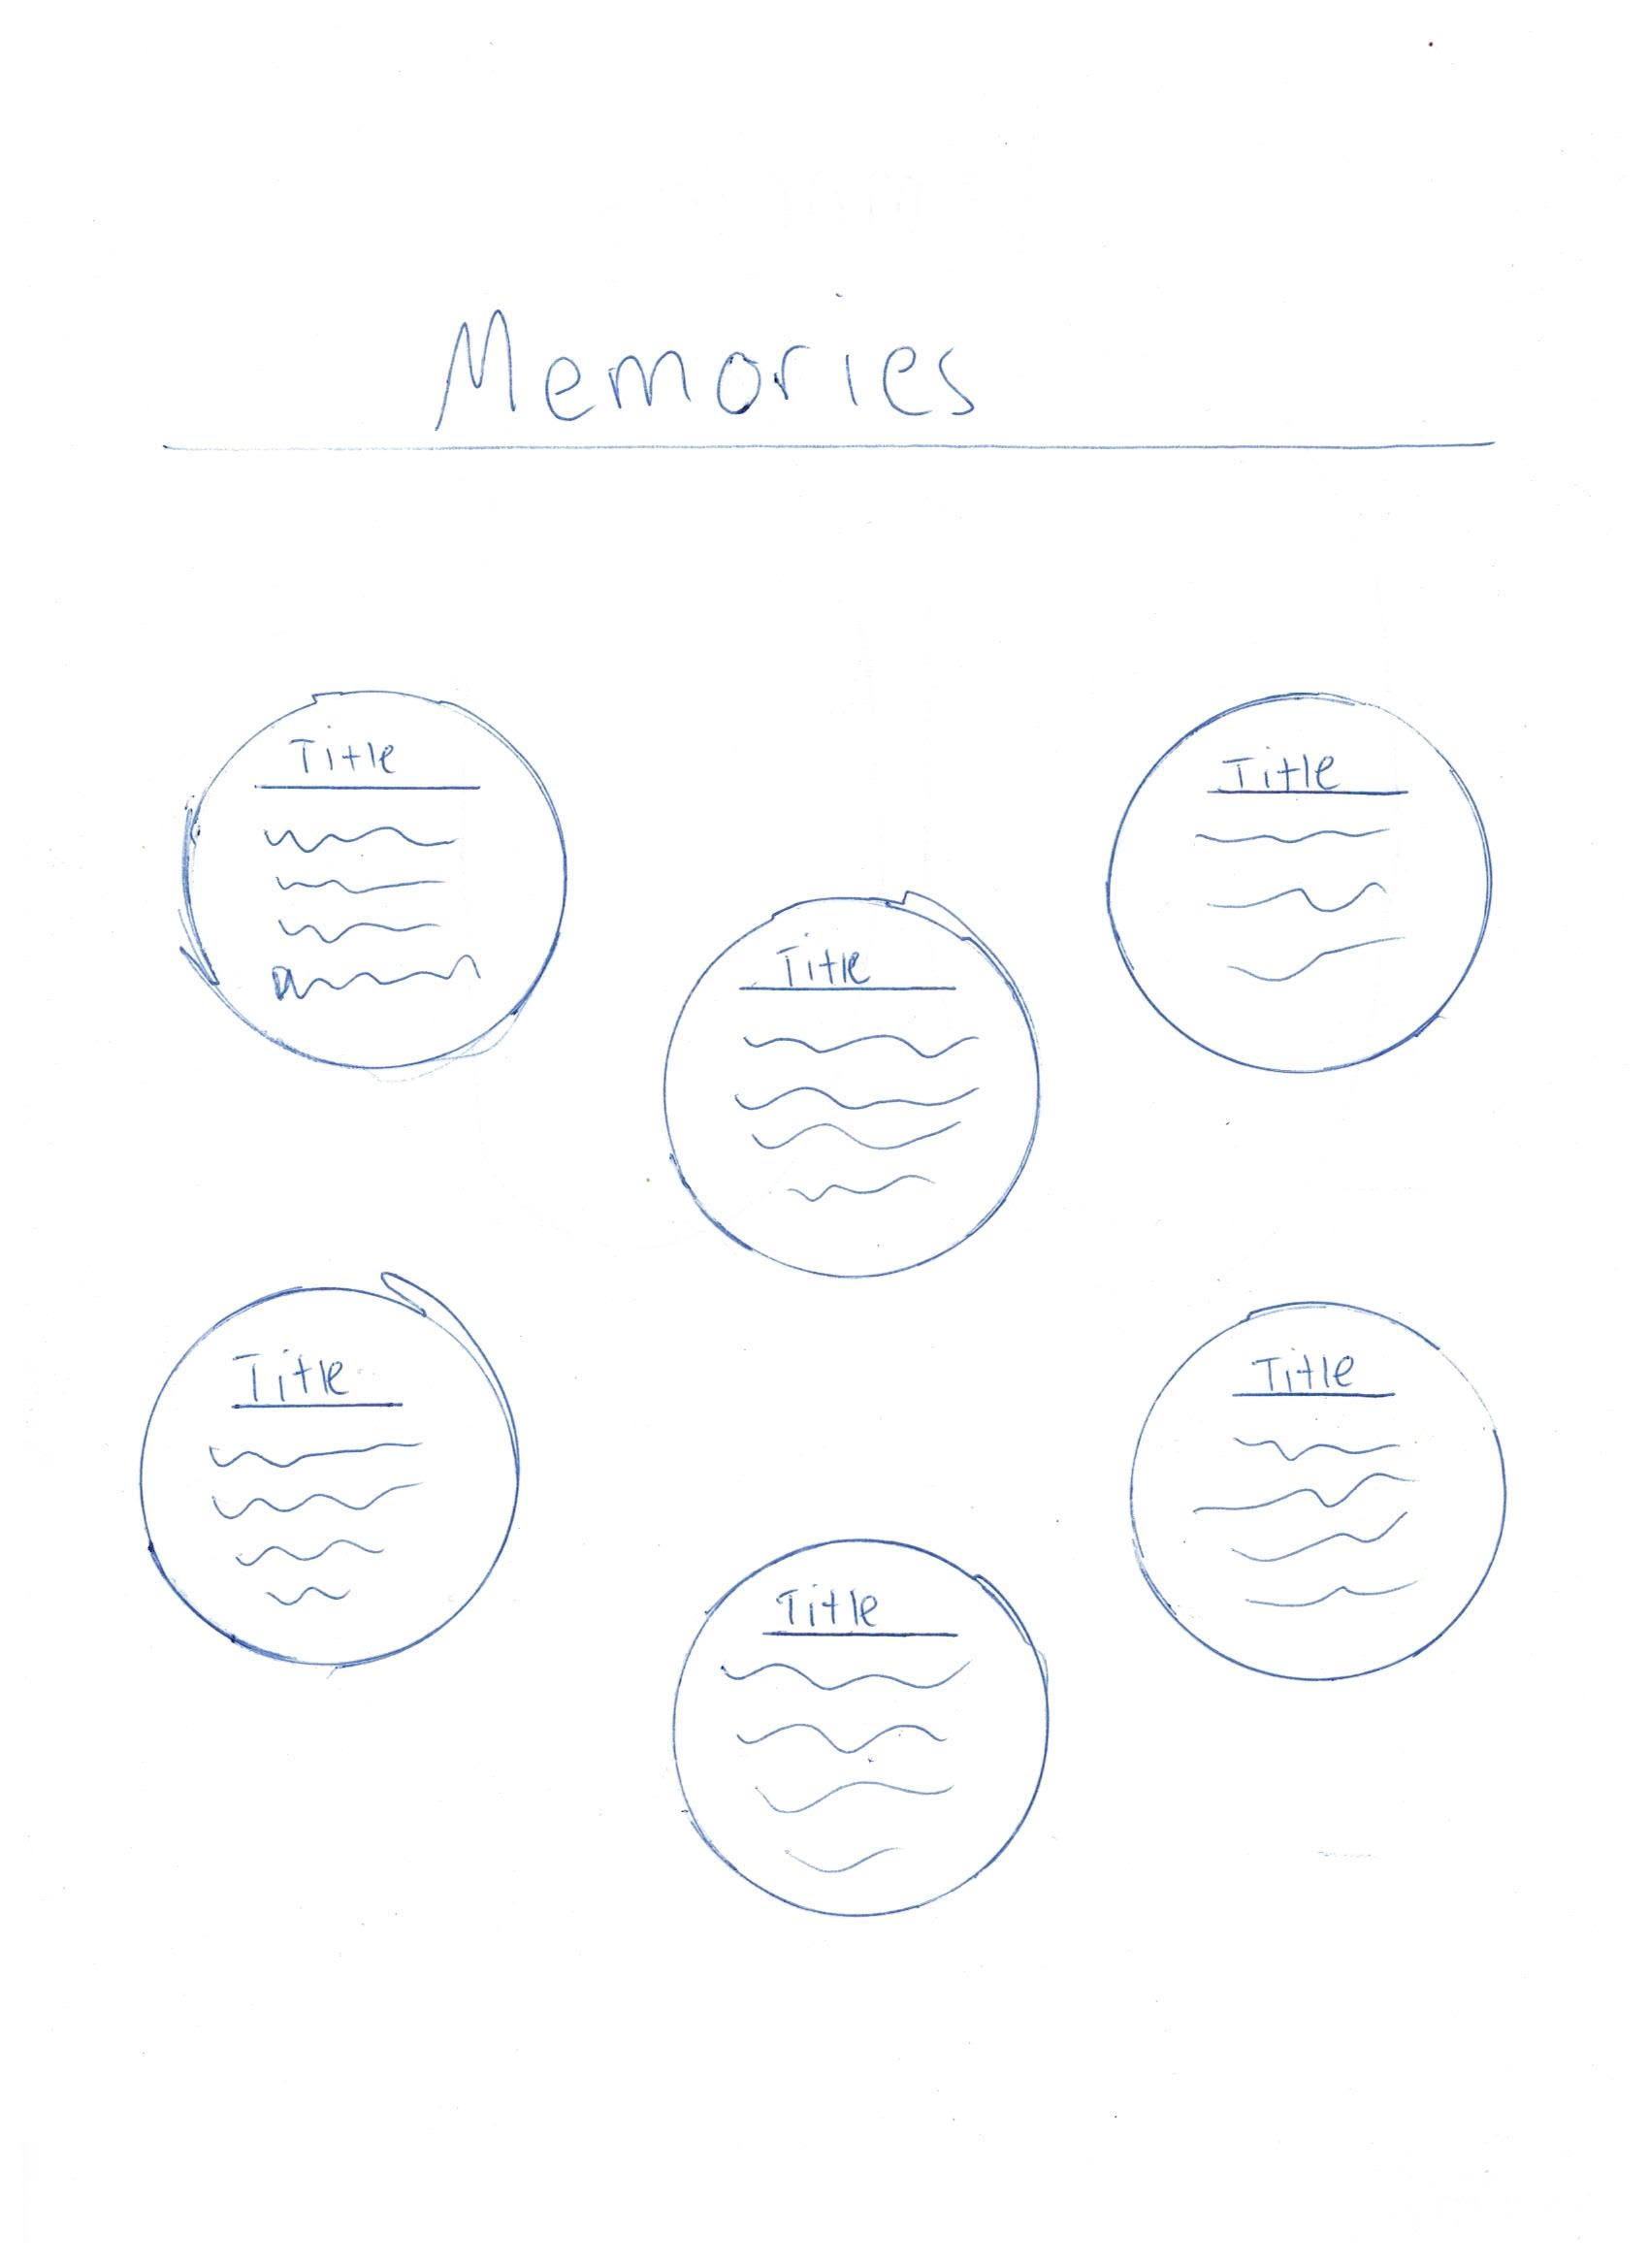 Memories
Title
Title
Title
Title
Title
Title